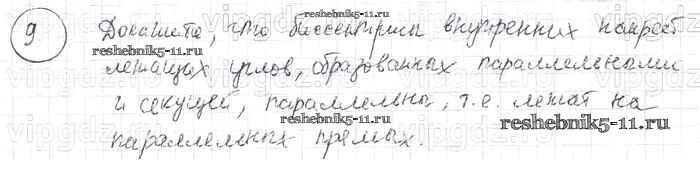 9 Докажите, что биссектрисы внутренних накрест
www.reshebnik5-11.ru
лежащих углов, образованных параллельными
и секущей, параллельны, т.е. лежат на
www.reshebnik5-11.ru
reshebnik5-11.ru
параллельных прямых.